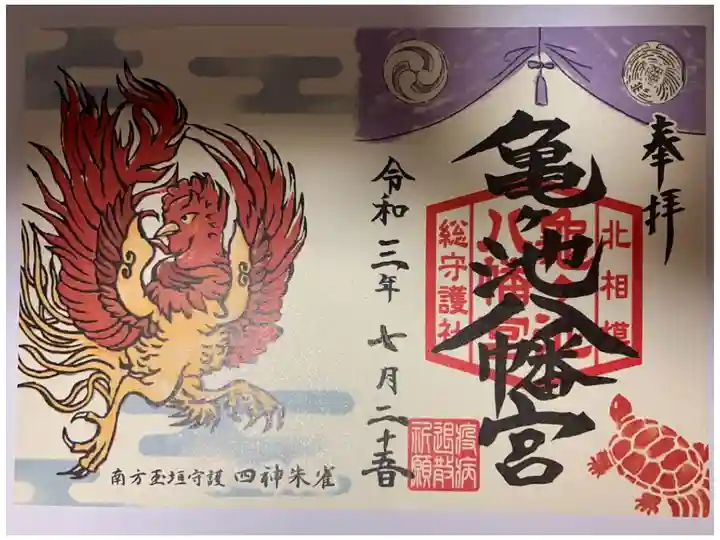 奉拝
北相模
亀ヶ池八幡宮
亀ヶ池
八幡宮
総守護社
疫病
退散
祈願
令和三年七月二十五日
南方玉垣守護 四神朱雀